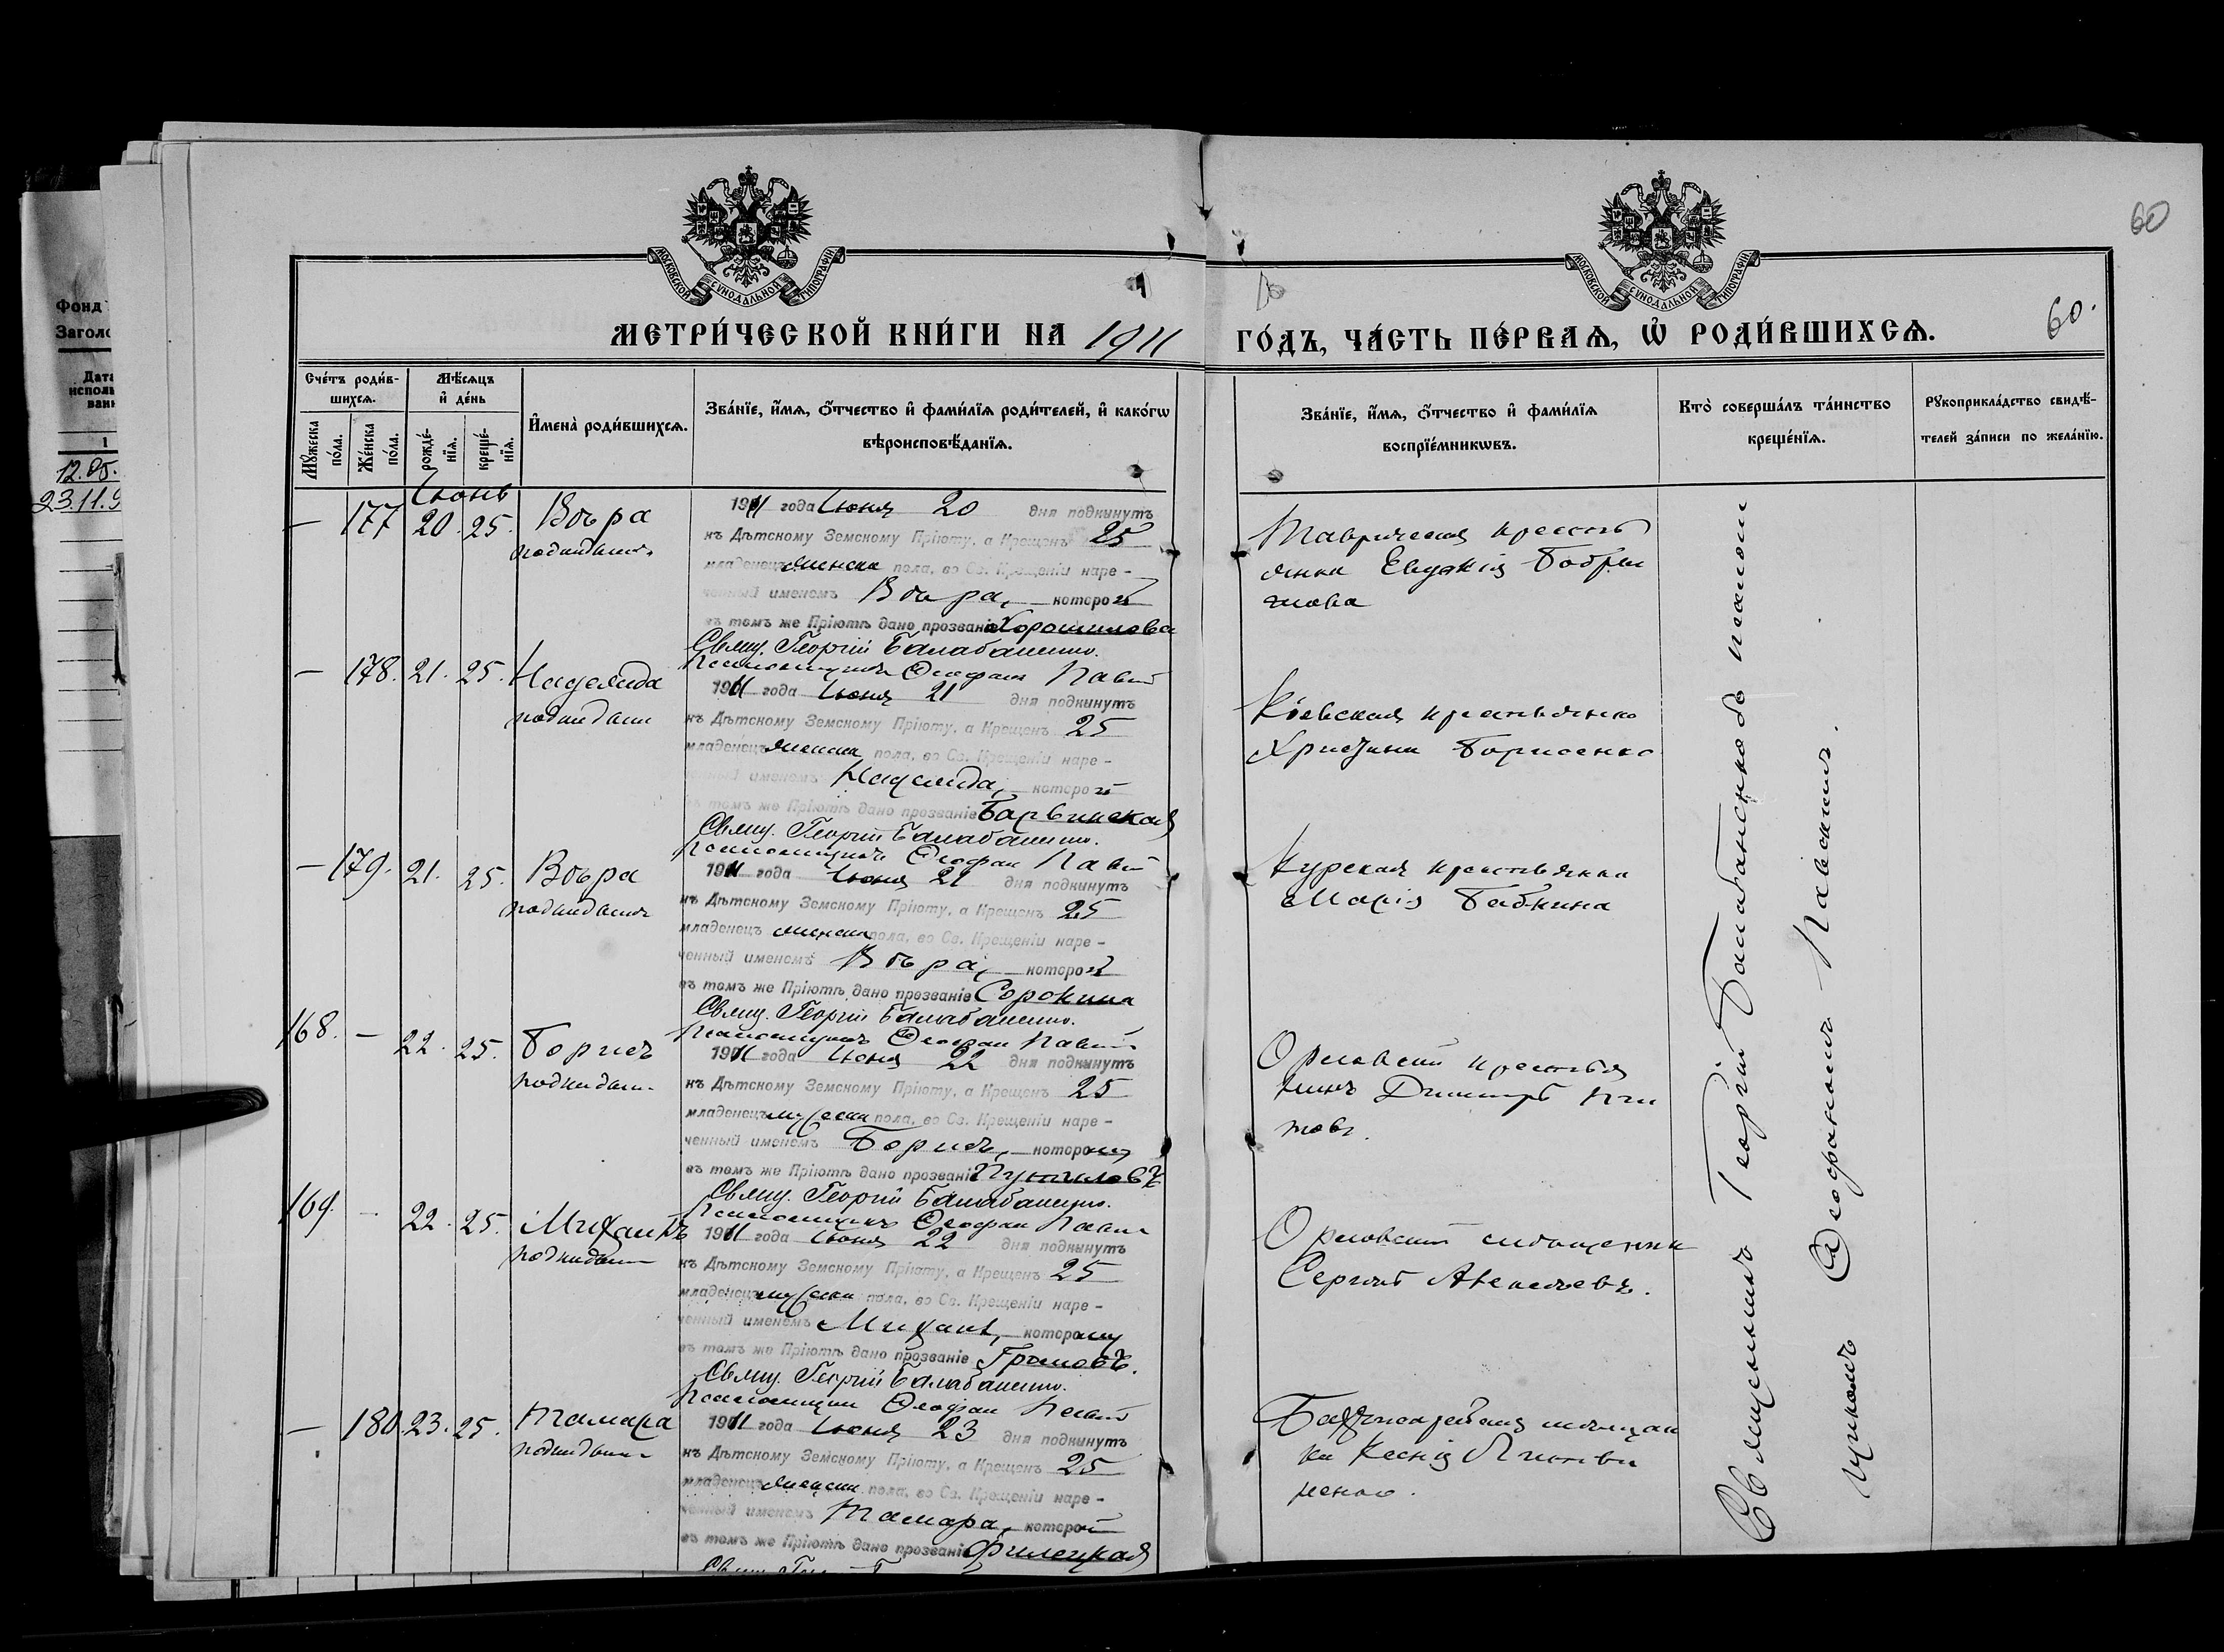 60
МОСКОВСКОЙ СУНОДАЛЬНОЙ ТИПОГРАФІИ
МОСКОВСКОЙ СУНОДАЛЬНОЙ ТИПОГРАФІИ
60.
МЕТРИ́ЧЕСКОЙ КНИ́ГИ НА 1911 ГО́ДЪ, ЧА́СТЬ ПЕ́РВАѦ, Ѡ҆ РОДИ́ВШИХСѦ.
Фонд
Заголо
Дата
исполь
вани
1
12.05.
23.11.9
Сче́тъ роди́в-
шихсѧ.
Мꙋ́жеска по́ла.
Же́нска по́ла.
Мѣ́сѧцъ
и҆ де́нь
рожде́-
нїѧ.
креще́-
нїѧ.
И҆мена̀ роди́вшихсѧ.
Зва́нїе, и҆́мѧ, ѻ҆́тчество и҆ фами́лїѧ роди́телей, и҆ како́гѡ
вѣроисповѣ́данїѧ.
Зва́нїе, и҆́мѧ, ѻ҆́тчество и҆ фами́лїѧ
воспрїе́мникѡвъ.
Кто̀ соверша́лъ та́инство
креще́нїѧ.
Рꙋкоприкла́дство свидѣ́-
телей за́писи по жела́нїю.
Іюнь
— 177 20. 25. Вѣра
подкидышъ
1911 года Іюня 20 дня подкинутъ
къ Дѣтскому Земскому Пріюту, а Крещенъ 25
младенецъ женска пола, во Св. Крещеніи наре -
ченный именемъ Вѣра, которой
въ томъ же Пріютѣ дано прозваніе Хорошилова
Свящ. Георгій Балабаненко.
Псаломщикъ Ѳеофан
Таврическая крестья
янка Евдокія Бобри
кова
— 178. 21. 25. Надежда
подкидыш
1911 года Іюня 21 дня подкинутъ
къ Дѣтскому Земскому Пріюту, а Крещенъ 25
младенецъ женска пола, во Св. Крещеніи наре -
ченный именемъ Надежда, которой
въ томъ же Пріютѣ дано прозваніе Барвинская
Свящ. Георгій Балабаненко.
Псаломщикъ Ѳеофан
Кіевская крестьянка
Христина Борисенко
— 179. 21. 25. Вѣра
подкидышъ
1911 года Іюня 21 дня подкинутъ
къ Дѣтскому Земскому Пріюту, а Крещенъ 25
младенецъ женска пола, во Св. Крещеніи наре -
ченный именемъ Вѣра, которой
въ томъ же Пріютѣ дано прозваніе Сорокина
Свящ. Георгій Балабаненко.
Псаломщикъ Ѳеофан
Курская крестьянка
Марія Бабкина
168. — 22. 25. Борисъ
подкидыш
1911 года Іюня 22 дня подкинутъ
къ Дѣтскому Земскому Пріюту, а Крещенъ 25
младенецъ мужеска пола, во Св. Крещеніи наре -
ченный именемъ Борисъ, которому
въ томъ же Пріютѣ дано прозваніе
Свящ. Георгій Балабаненко.
Псаломщикъ Ѳеофан
Орловскій крестья
нинъ
169. — 22. 25. Михаилъ
подкидыш
1911 года Іюня 22 дня подкинутъ
къ Дѣтскому Земскому Пріюту, а Крещенъ 25
младенецъ мужеска пола, во Св. Крещеніи наре -
ченный именемъ Михаил, которому
въ томъ же Пріютѣ дано прозваніе Громовъ.
Свящ. Георгій Балабаненко.
Псаломщикъ Ѳеофан
Орловскій
Сергій Алексѣевъ.
— 180. 23. 25. Тамара
подкидыш
1911 года Іюня 23 дня подкинутъ
къ Дѣтскому Земскому Пріюту, а Крещенъ 25
младенецъ женска пола, во Св. Крещеніи наре -
ченный именемъ Тамара, которой
въ томъ же Пріютѣ дано прозваніе Филецкая
мѣщан
ка Ксенія Литви
ненко.
Священникъ Георгій Балабаненко съ псалом
щикомъ Ѳеофаномъ